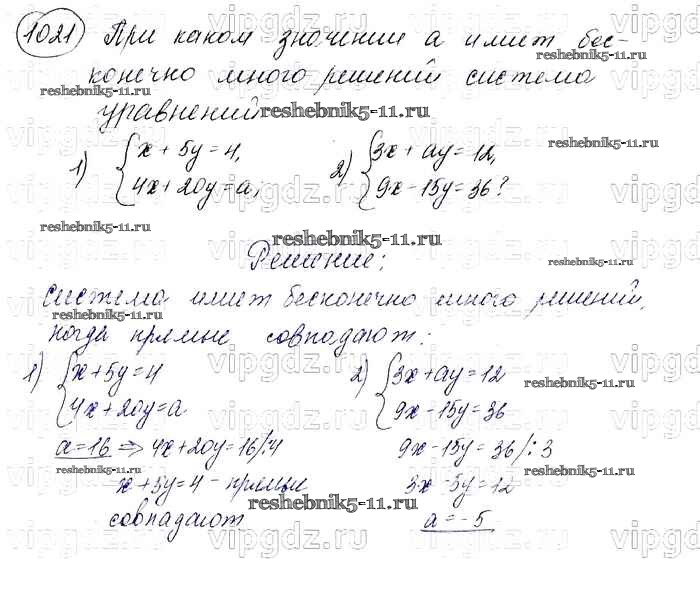 1021 При каком значении a имеет бес-
конечно много решений система
уравнений
1) { x + 5y = 4,
4x + 20y = a,
2) { 3x + ay = 12,
9x - 15y = 36?
Решение:
система имеет бесконечно много решений,
когда прямые совпадают:
1) { x + 5y = 4
4x + 20y = a
a = 16 ⇒ 4x + 20y = 16 /:4
x + 5y = 4 - прямые
совпадают
2) { 3x + ay = 12
9x - 15y = 36
9x - 15y = 36 /: 3
3x - 5y = 12
a = -5
reshebnik5-11.ru
vipgdz.ru